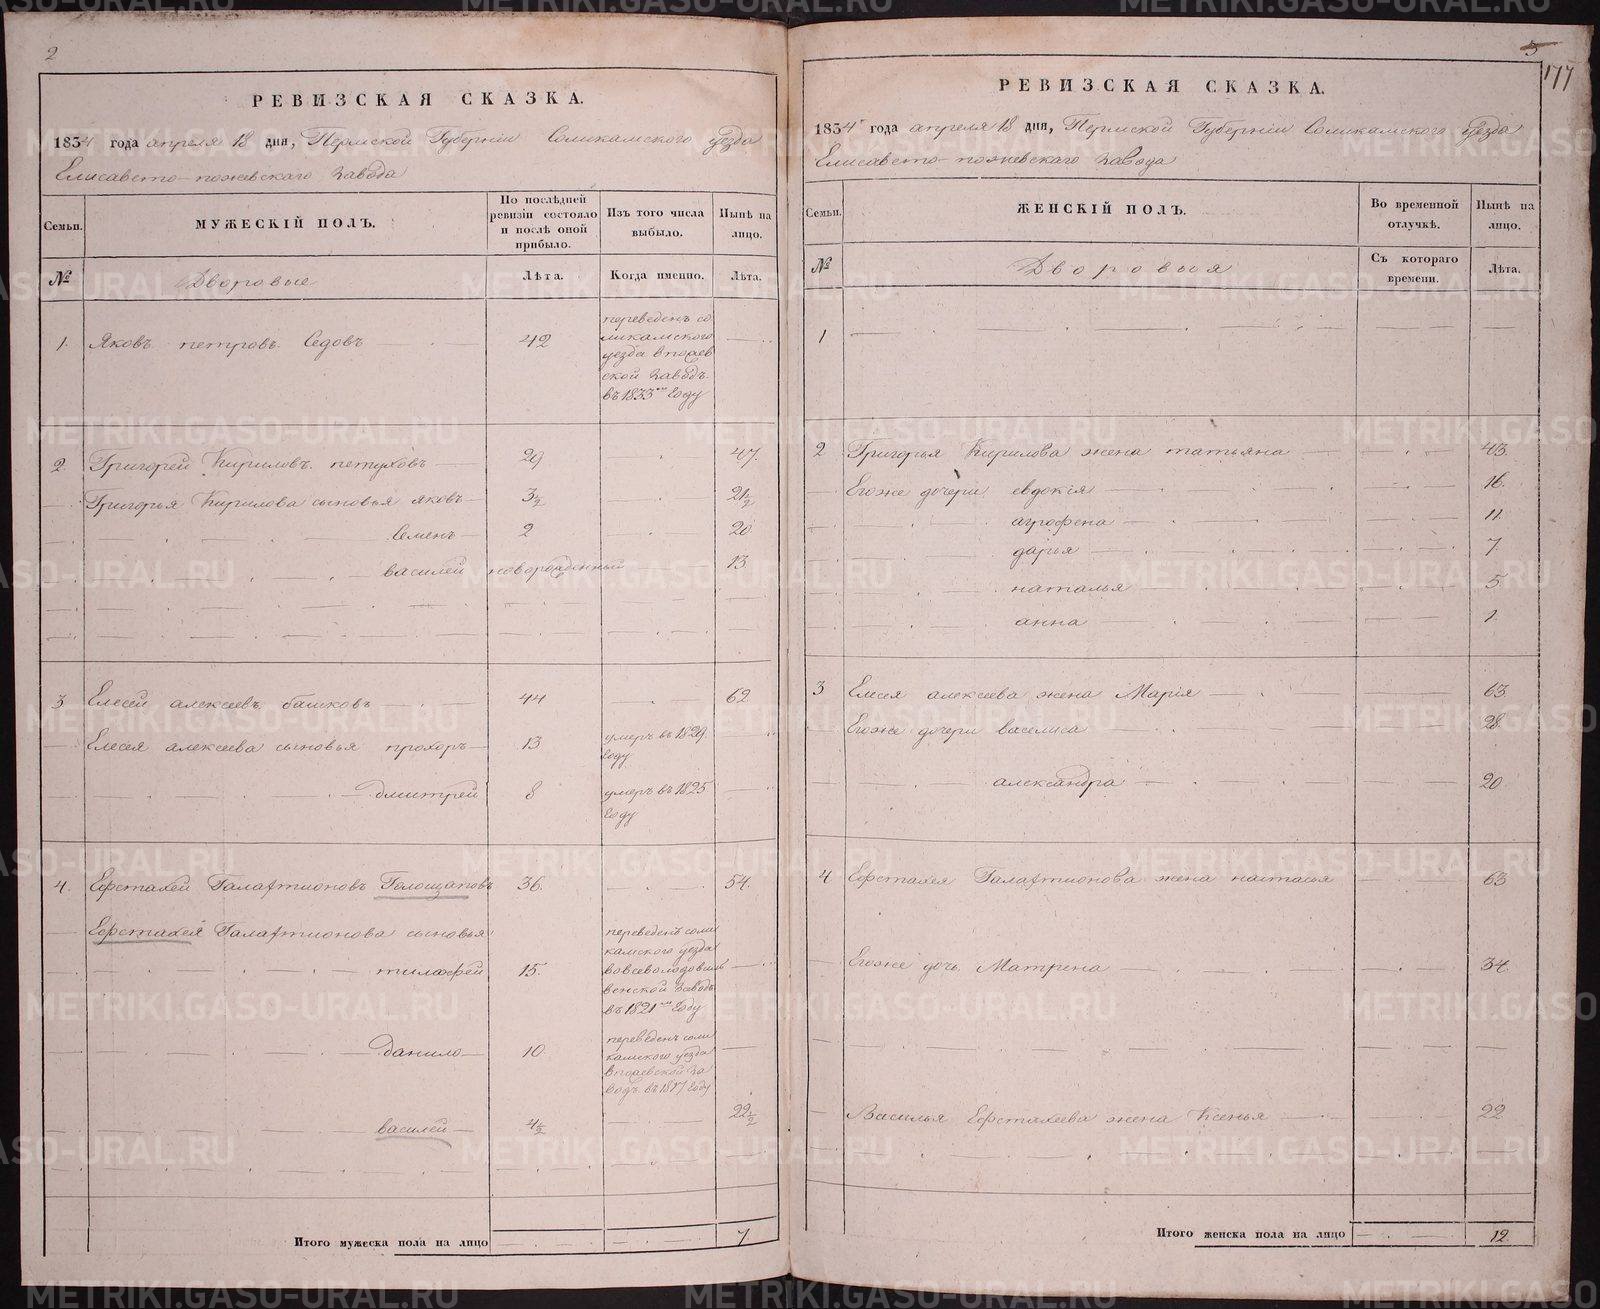 2
РЕВИЗСКАЯ СКАЗКА.
1834 года апреля 18 дня, Пермской Губернiи Соликамского уезда
Елисавето-пожевскаго завода
Семьи.
МУЖЕСКIЙ ПОЛЪ.
По послѣдней ревизiи состояло и послѣ оной прибыло.
Изъ того числа выбыло.
Нынѣ на лицо.
№
Дворовые
Лѣта.
Когда именно.
Лѣта.
1. Яковъ петровъ Седовъ 42
переведенъ со
ликамского
уезда в
ской заводъ
въ 1833мъ Году
2 Григорей Кириловъ петуховъ 29 47
Григорья Кирилова сыновья яковъ 3½ 21½
семенъ 2 20
василей новорожденный 13
3 Елесей алексеевъ башковъ 44 62
Елесея алексеева сыновья прохоръ 13
умеръ въ 1829
Году
дмитрей 8
умеръ въ 1825
Году
4. Ефстахей Галафтионовъ 36. 54.
Ефстахея Галафтионова сыновья
15.
переведенъ соли
камского уезда
вовсеволодовиль
венской заводъ
въ 1821мъ Году
данило 10.
переведенъ соли
камского уезда
за
водъ въ Году
василей 4½ 22½
Итого мужеска пола на лицо 7
5
177
РЕВИЗСКАЯ СКАЗКА.
1834 года апреля 18 дня, Пермской Губернiи Соликамского уезда
Елисавето-пожевскаго завода
Семьи.
ЖЕНСКIЙ ПОЛЪ.
Во временной отлучкѣ.
Нынѣ на лицо.
№
Дворовыя
Съ котораго времени.
Лѣта.
1
2 Григорья Кирилова жена татьяна 43.
Егоже дочери евдокiя 16.
агрофена 11.
дарья 7.
наталья 5.
анна 1.
3 Елесея алексеева жена Марiя 63.
Егоже дочери василиса 28.
александра 20
4 Ефстахея Галафтионова жена настасья 63
Егоже дочь Матрена 34.
Василья Ефстахеева жена Ксенья 22
Итого женска пола на лицо 12.
METRIKI.GASO-URAL.RU